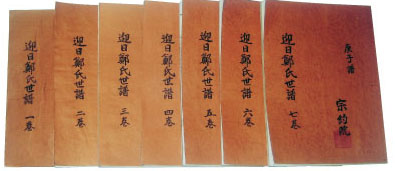 迎日鄭氏世譜 一卷
迎日鄭氏世譜 二卷
迎日鄭氏世譜 三卷
迎日鄭氏世譜 四卷
迎日鄭氏世譜 五卷
迎日鄭氏世譜 六卷
迎日鄭氏世譜 七卷
庚子譜
宗約院